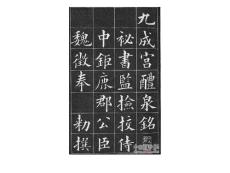 九成宮醴泉銘
秘書監撿挍侍
中鉅鹿郡公臣
魏徵奉勑撰